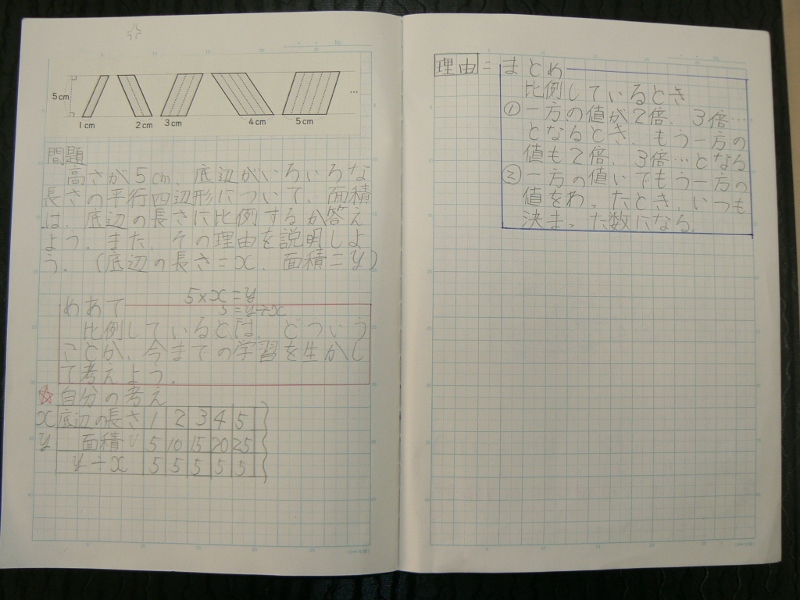 5cm
1cm 2cm 3cm 4cm 5cm …
問題
高さが5cm、底辺がいろいろな
長さの平行四辺形について、面積
は、底辺の長さに比例するか答え
よう。また、その理由を説明しよ
う。(底辺の長さ=x、面積=y)
5×x=y
5=y÷x
めあて
比例しているとは、どういう
ことか、今までの学習を生かし
て考えよう。
自分の考え
x 底辺の長さ 1 2 3 4 5
y 面積 5 10 15 20 25
y÷x 5 5 5 5 5
理由=まとめ
比例しているとき
① 一方の値が2倍、3倍…
となるとき、もう一方の
値も2倍、3倍…となる
② 一方の値いでもう一方の
値をわったとき、いつも
決まった数になる。